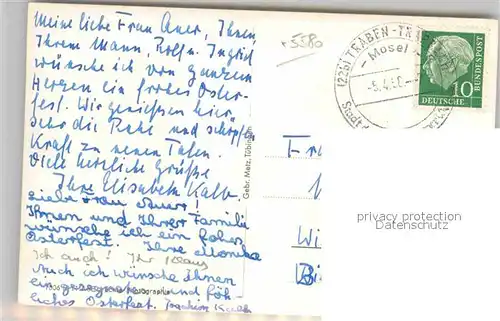 Meine liebe Frau Auer, Ihnen
Ihrem Mann, Rolf u. Ingrid
wünsche ich von ganzem
Herzen ein frohes Oster-
fest. Wir geniessen hier
sehr die Ruhe und schöpfen
Kraft zu neuen Taten.
Viele herzliche Grüße
Ihre Elisabeth Kalb.
Liebe Frau Auer!
Ihnen und Ihrer Familie
wünsche ich ein frohes
Osterfest. Ihre Monika
Ich auch! Ihr Klaus
Auch ich wünsche Ihnen
ein gesegnetes und fröh-
liches Osterfest. Joachim Kalb
Gebr. Metz, Tübingen
5580
(22b) TRABEN-TR
Mosel
10
DEUTSCHE
BUNDESPOST
Fr
Wi
privacy protection
Datenschutz